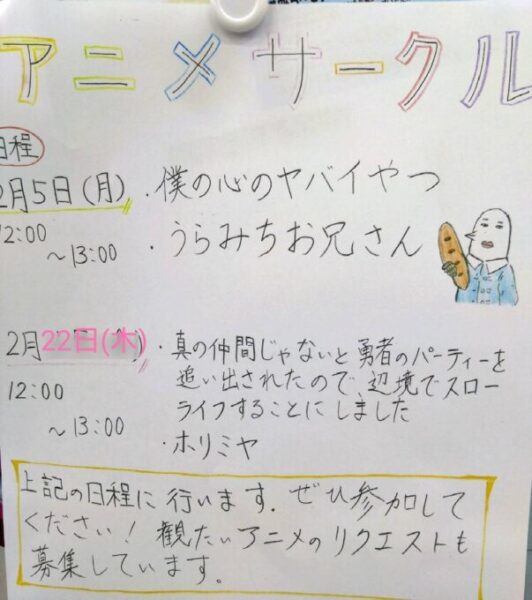 アニメサークル
日程
2月5日(月)
・僕の心のヤバイやつ
12:00
～13:00
・うらみちお兄さん
2月22日(木)
・真の仲間じゃないと勇者のパーティーを
追い出されたので、辺境でスロー
ライフすることにしました
12:00
～13:00
・ホリミヤ
上記の日程に行います。ぜひ参加して
ください！観たいアニメのリクエストも
募集しています。